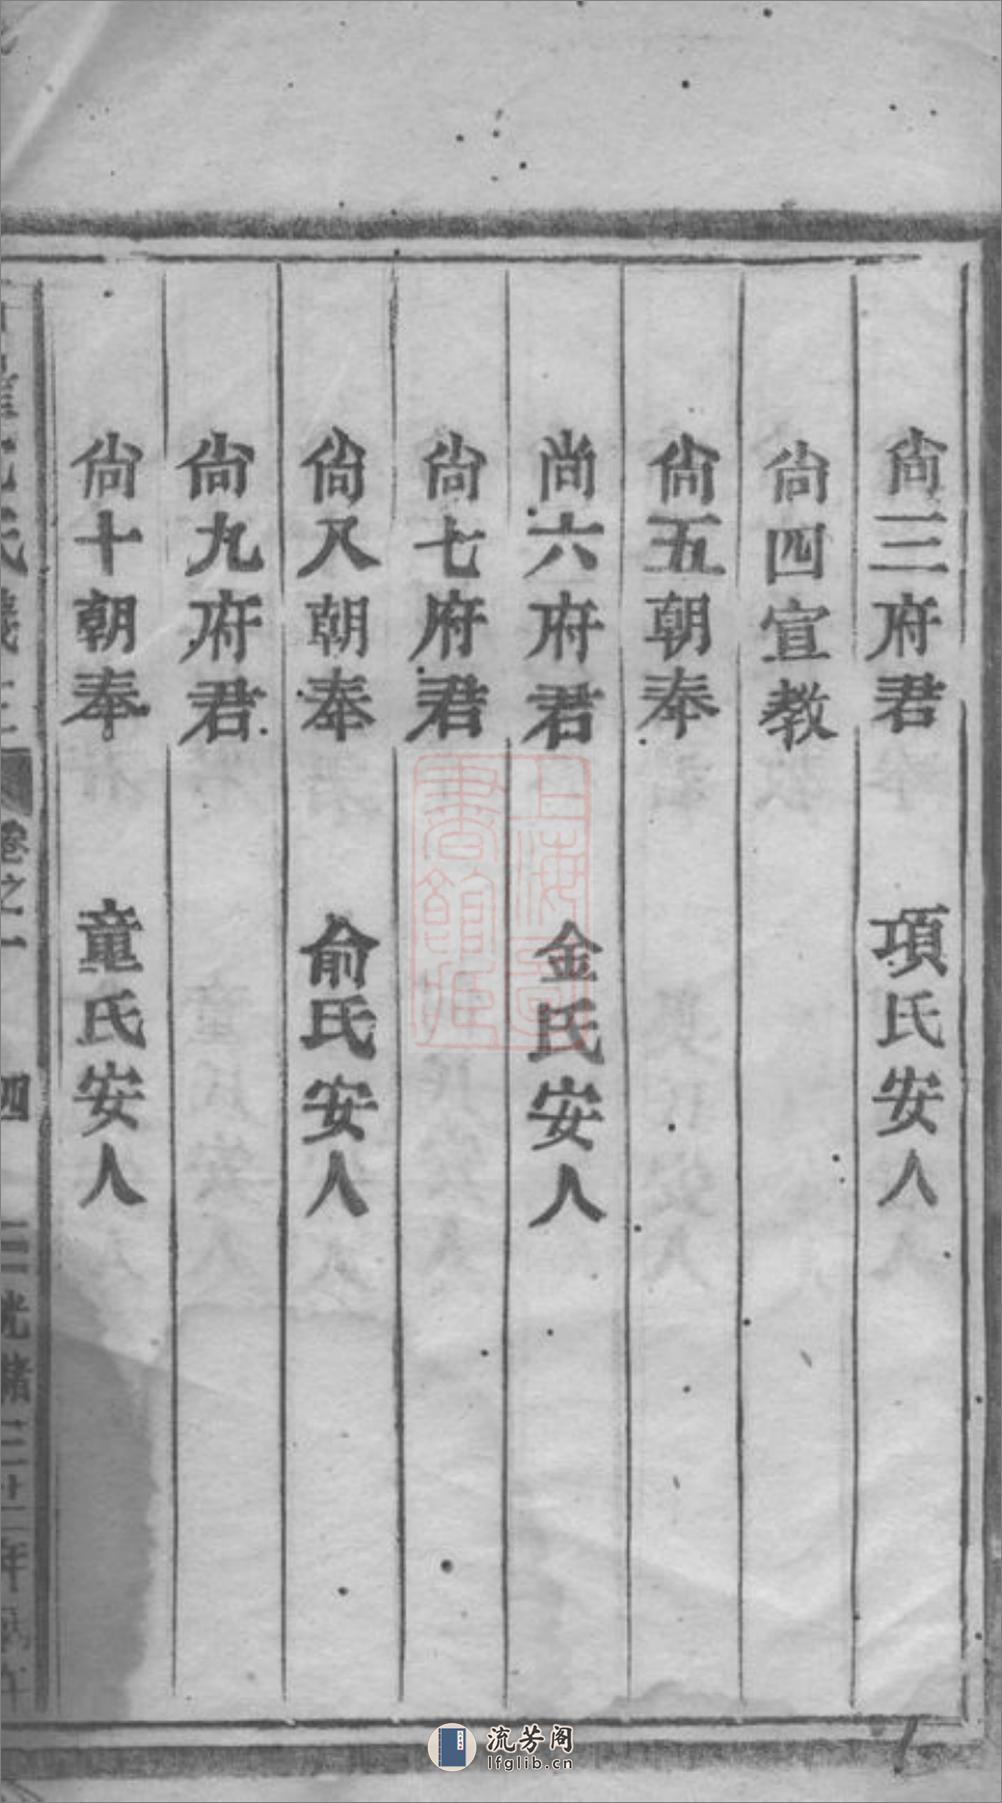 尙三府君 項氏安人
尙四宣教
尙五朝奉
尚六府君 金氏安人
尙七府君
尙八朝奉 俞氏安人
尙九府君
尙十朝奉 童氏安人
卷之一 四
光緖三十二年
上海圖書館藏
流芳阁
lfglib.cn